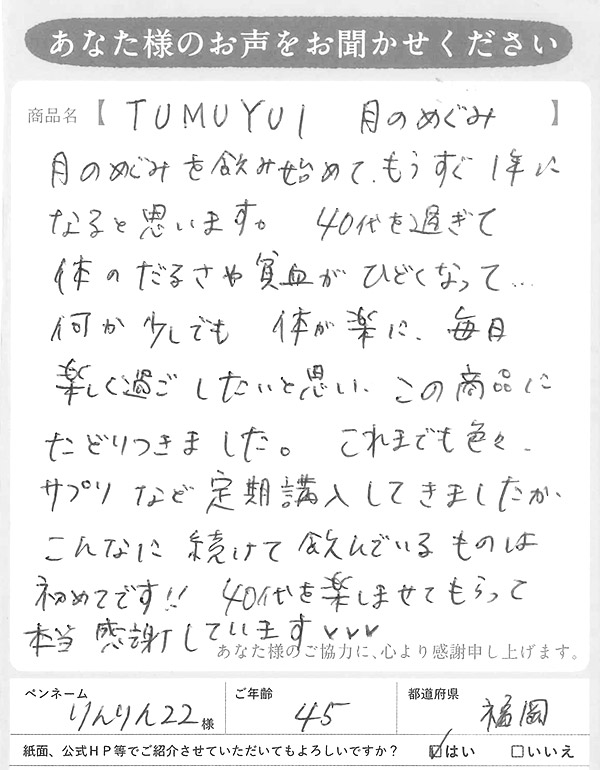 あなた様のお声をお聞かせください
商品名【 TUMUYUI 月のめぐみ 】
月のめぐみを飲み始めて、もうすぐ1年に
なると思います。 40代を過ぎて
体のだるさや貧血がひどくなって…
何か少しでも 体が楽に、毎日
楽しく過ごしたいと思い、この商品に
たどりつきました。 これまでも色々、
サプリなど定期講入してきましたが、
こんなに続けて飲んでいるものは
初めてです!! 40代を楽しませてもらって
本当感謝しています♡♡♡
あなた様のご協力に、心より感謝申し上げます。
ペンネーム りんりん22様 ご年齢 45 都道府県 福岡
紙面、公式HP等でご紹介させていただいてもよろしいですか? ☑はい □いいえ